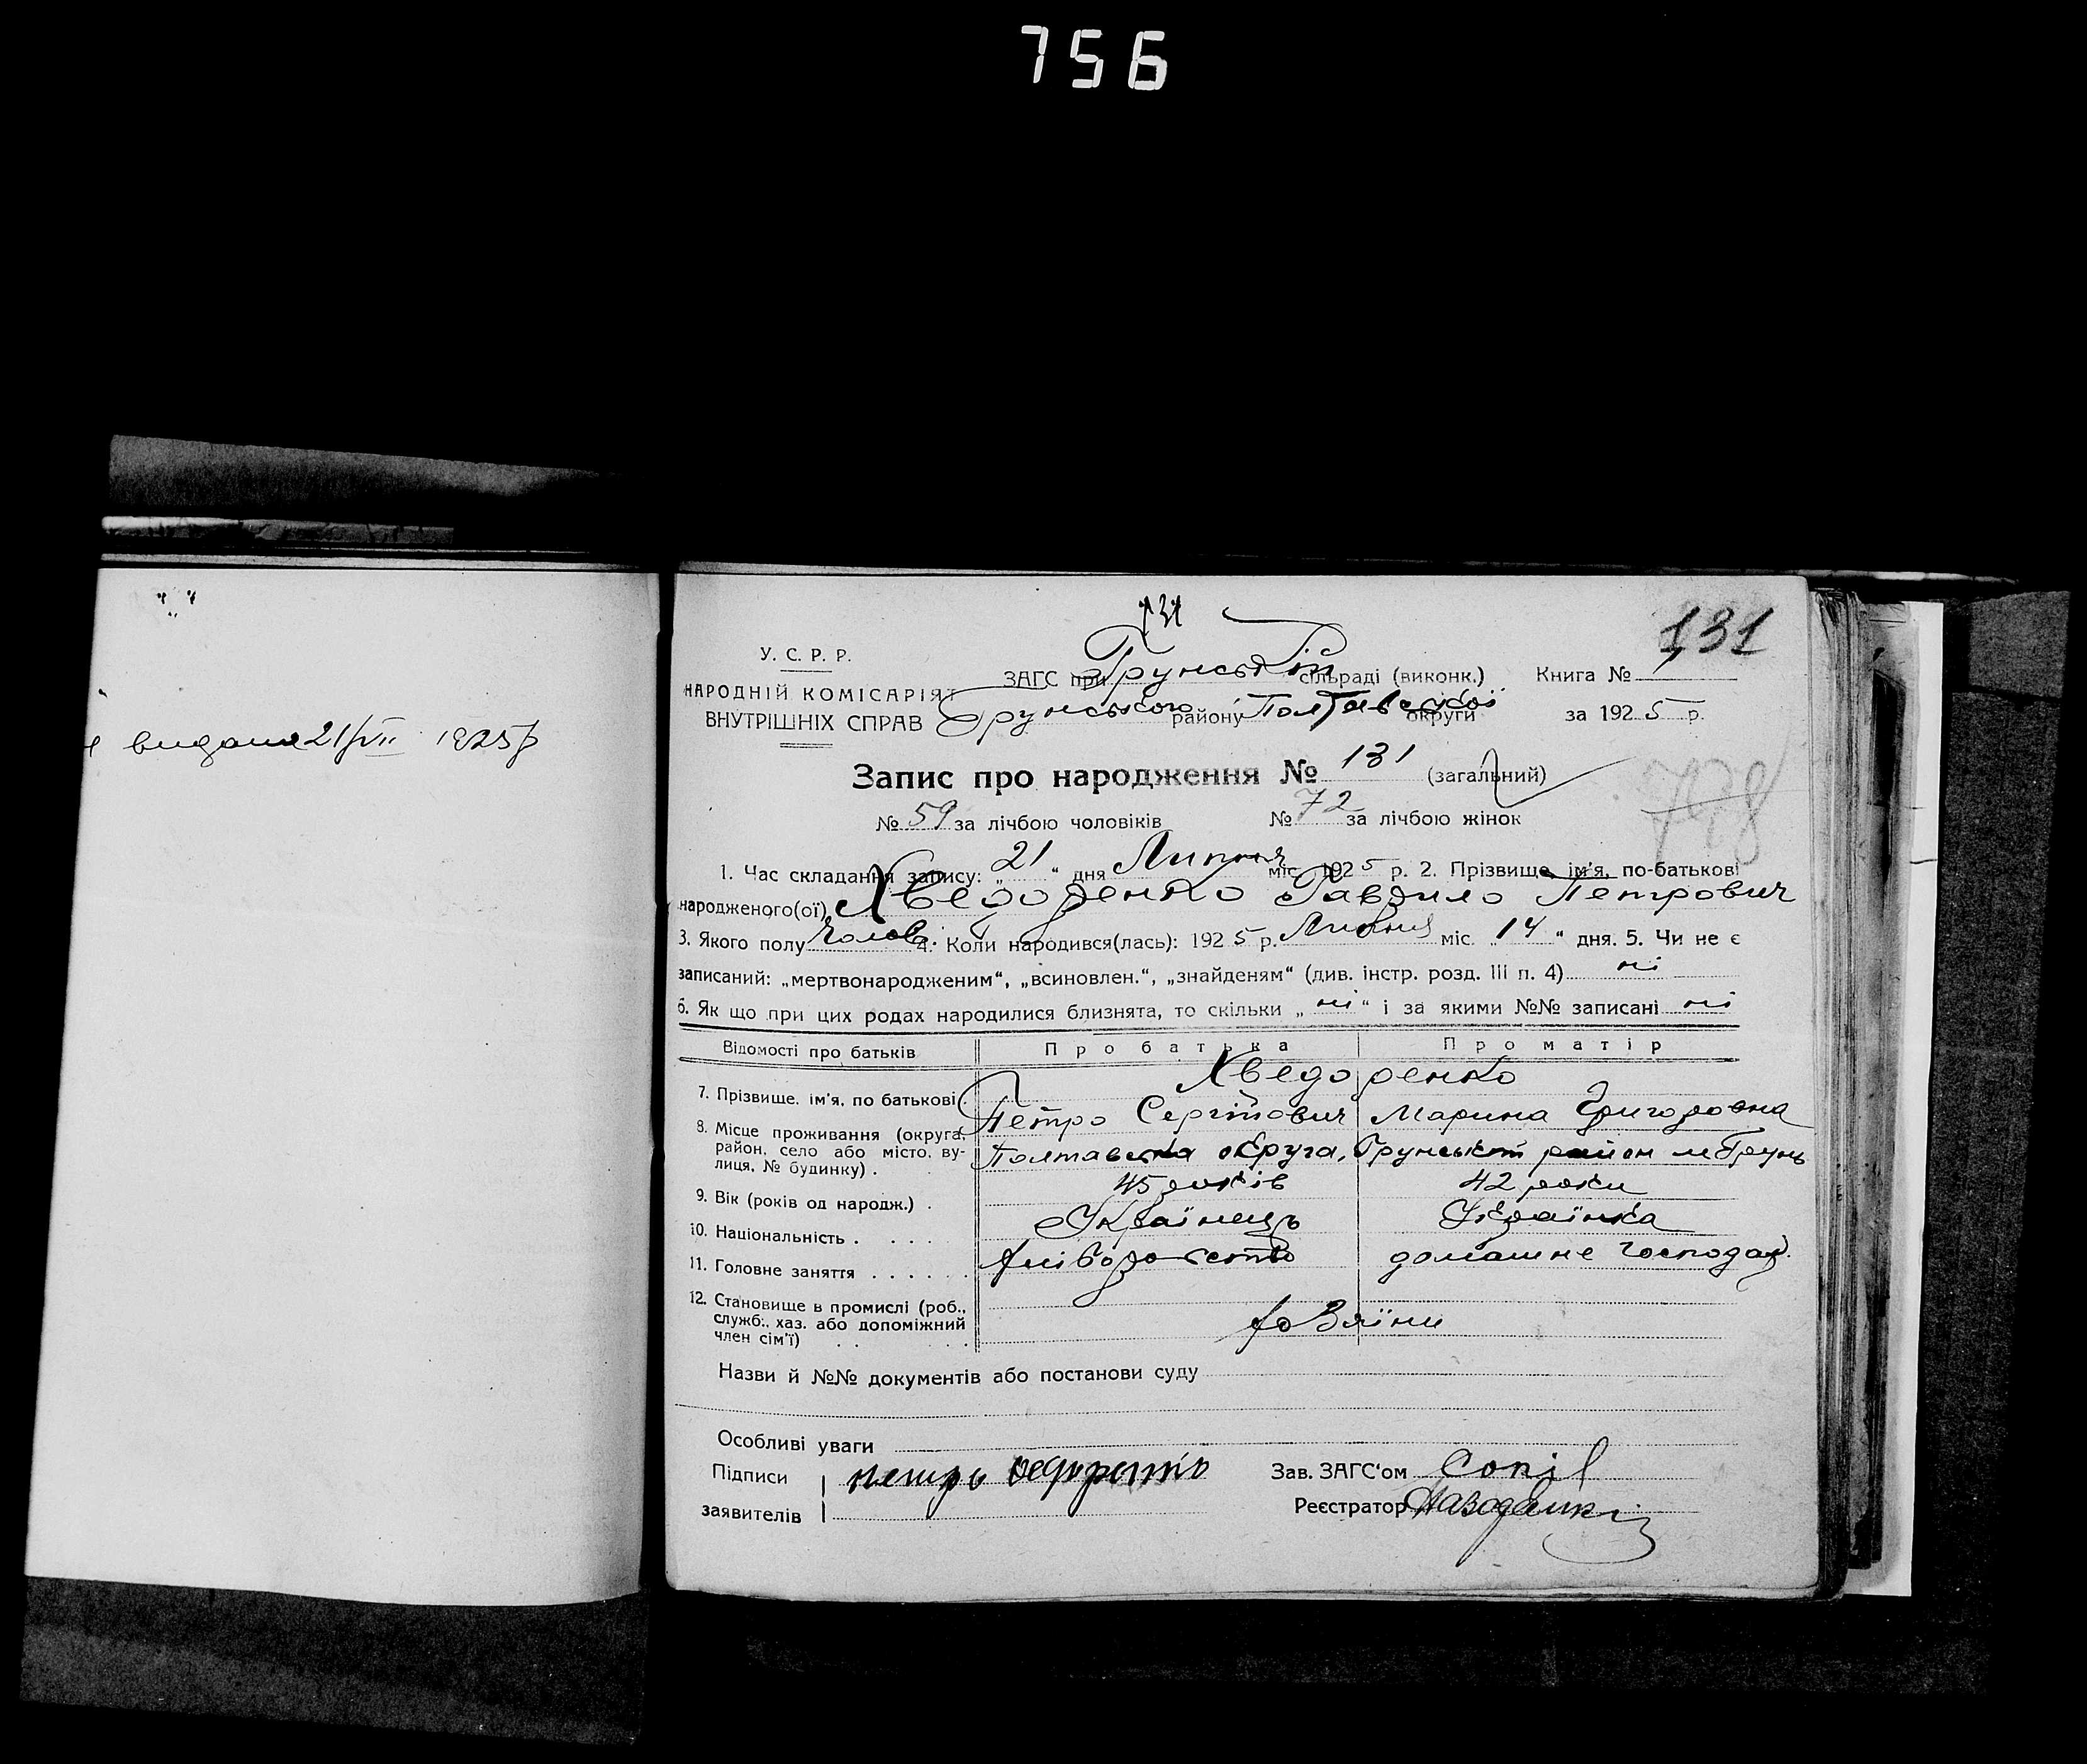 756
131
131
У. С. Р. Р.
ЗАГС при Грунській сільраді (виконк.) Книга № 1
НАРОДНІЙ КОМІСАРІЯТ
ВНУТРІШНІХ СПРАВ Грунського району Полтавської округи за 1925 р.
видана 21/VII 1925 р
Запис про народження № 131 (загальний)
778
№ 59 за лічбою чоловіків № 72 за лічбою жінок
1. Час складання запису: „21“ дня Липня міс. 1925 р. 2. Прізвище, ім'я, по-батькові
народженого(ої) Хведоренко Гаврило Петрович
3. Якого полу Чолов. 4. Коли народився(лась): 1925 р. Липня міс. „14“ дня. 5. Чи не є
записаний: „мертвонародженим“, „всиновлен.“, „знайденям“ (див. інстр. розд. III п. 4) ні
6. Як що при цих родах народилися близнята, то скільки „ні“ і за якими №№ записані ні
Відомості про батьків Про батька Про матір
Хведоренко
7. Прізвище, ім'я, по батькові Петро Сергійович Марина Григоровна
8. Місце проживання (округа, район, село або місто, вулиця, № будинку) . Полтавська округа, Грунський район м Грунь
9. Вік (років од народж.) . 45 років 42 роки
10. Національність . . . . Українець Українка
11. Головне заняття . . . . . . Хліборобство домашнє господар.
12. Становище в промислі (роб.,
служб., хаз. або допоміжний
член сім'ї) . . . . хозяїни
Назви й №№ документів або постанови суду
Особливі уваги
Підписи петро Зав. ЗАГС'ом Сопіл
заявителів Реєстратор